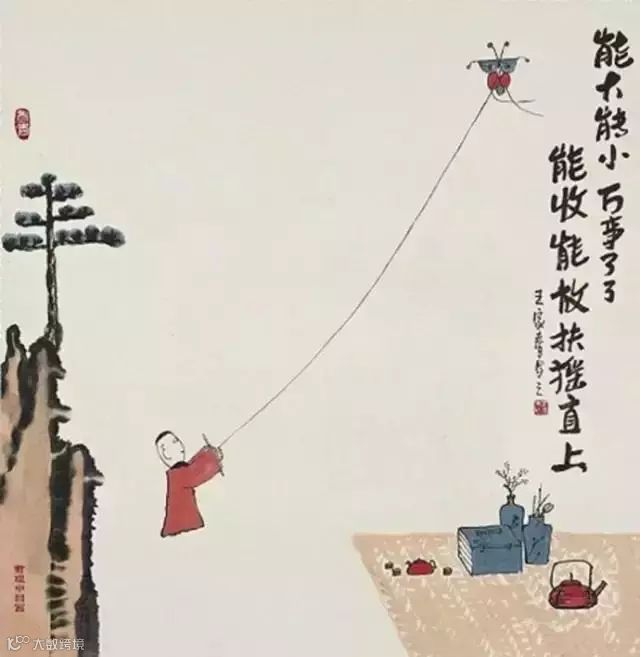 能大能小万事了了
能收能放扶摇直上
王家春画之
大数跨境